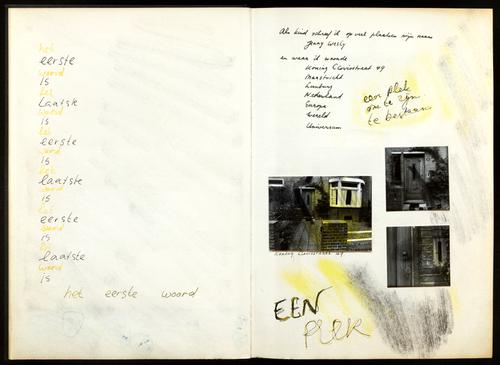 het
eerste
woord
is
het
laatste
woord
is
het
eerste
woord
is
het
laatste
woord
is
het
eerste
woord
is
het
laatste
woord
is
het eerste woord
Als kind schreef ik op veel plaatsen mijn naam
Jenny Wesly
en waar ik woonde
Koning Clovisstraat 49
Maastricht
Limburg
Nederland
Europa
Wereld
Universum
een plek
om te zijn
te bestaan
Koning Clovisstraat 49
EEN
PLEK